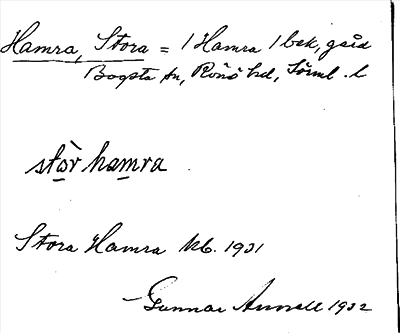 Hamra, Stora = 1 Hamra 1 bek, gård
Bogsta sn, Rönö hd, Sörml. l.
stòr hamra
Stora Hamra kb. 1931
Gunnar 1932